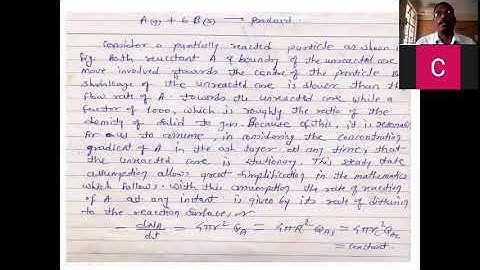 A(g) + b B(s) → Product.
Consider a partially reacted particle as shown in
fig. Both reactant A & boundry of the unreacted core
move involved towards the centre of the particle
shrinkage of the unreacted core is slower than the
flow rate of A towards the unreacted core while a
factor of 1000, which is roughly the ratio of the
density of solid to gas. Because of this, it is
for to assume, in considering the concentration
gradient of A in the ash layer at any time, that
the unreacted core is stationary. This steady state
assumption allows great simplification in the mathematics
which follows. With this assumption the rate of reaction
of A at any instant is given by its rate of diffusing
to the reaction surface,
- dNA/dt = 4πr² QA = 4πR² QAs = 4πrc² QAc
= constant.
C